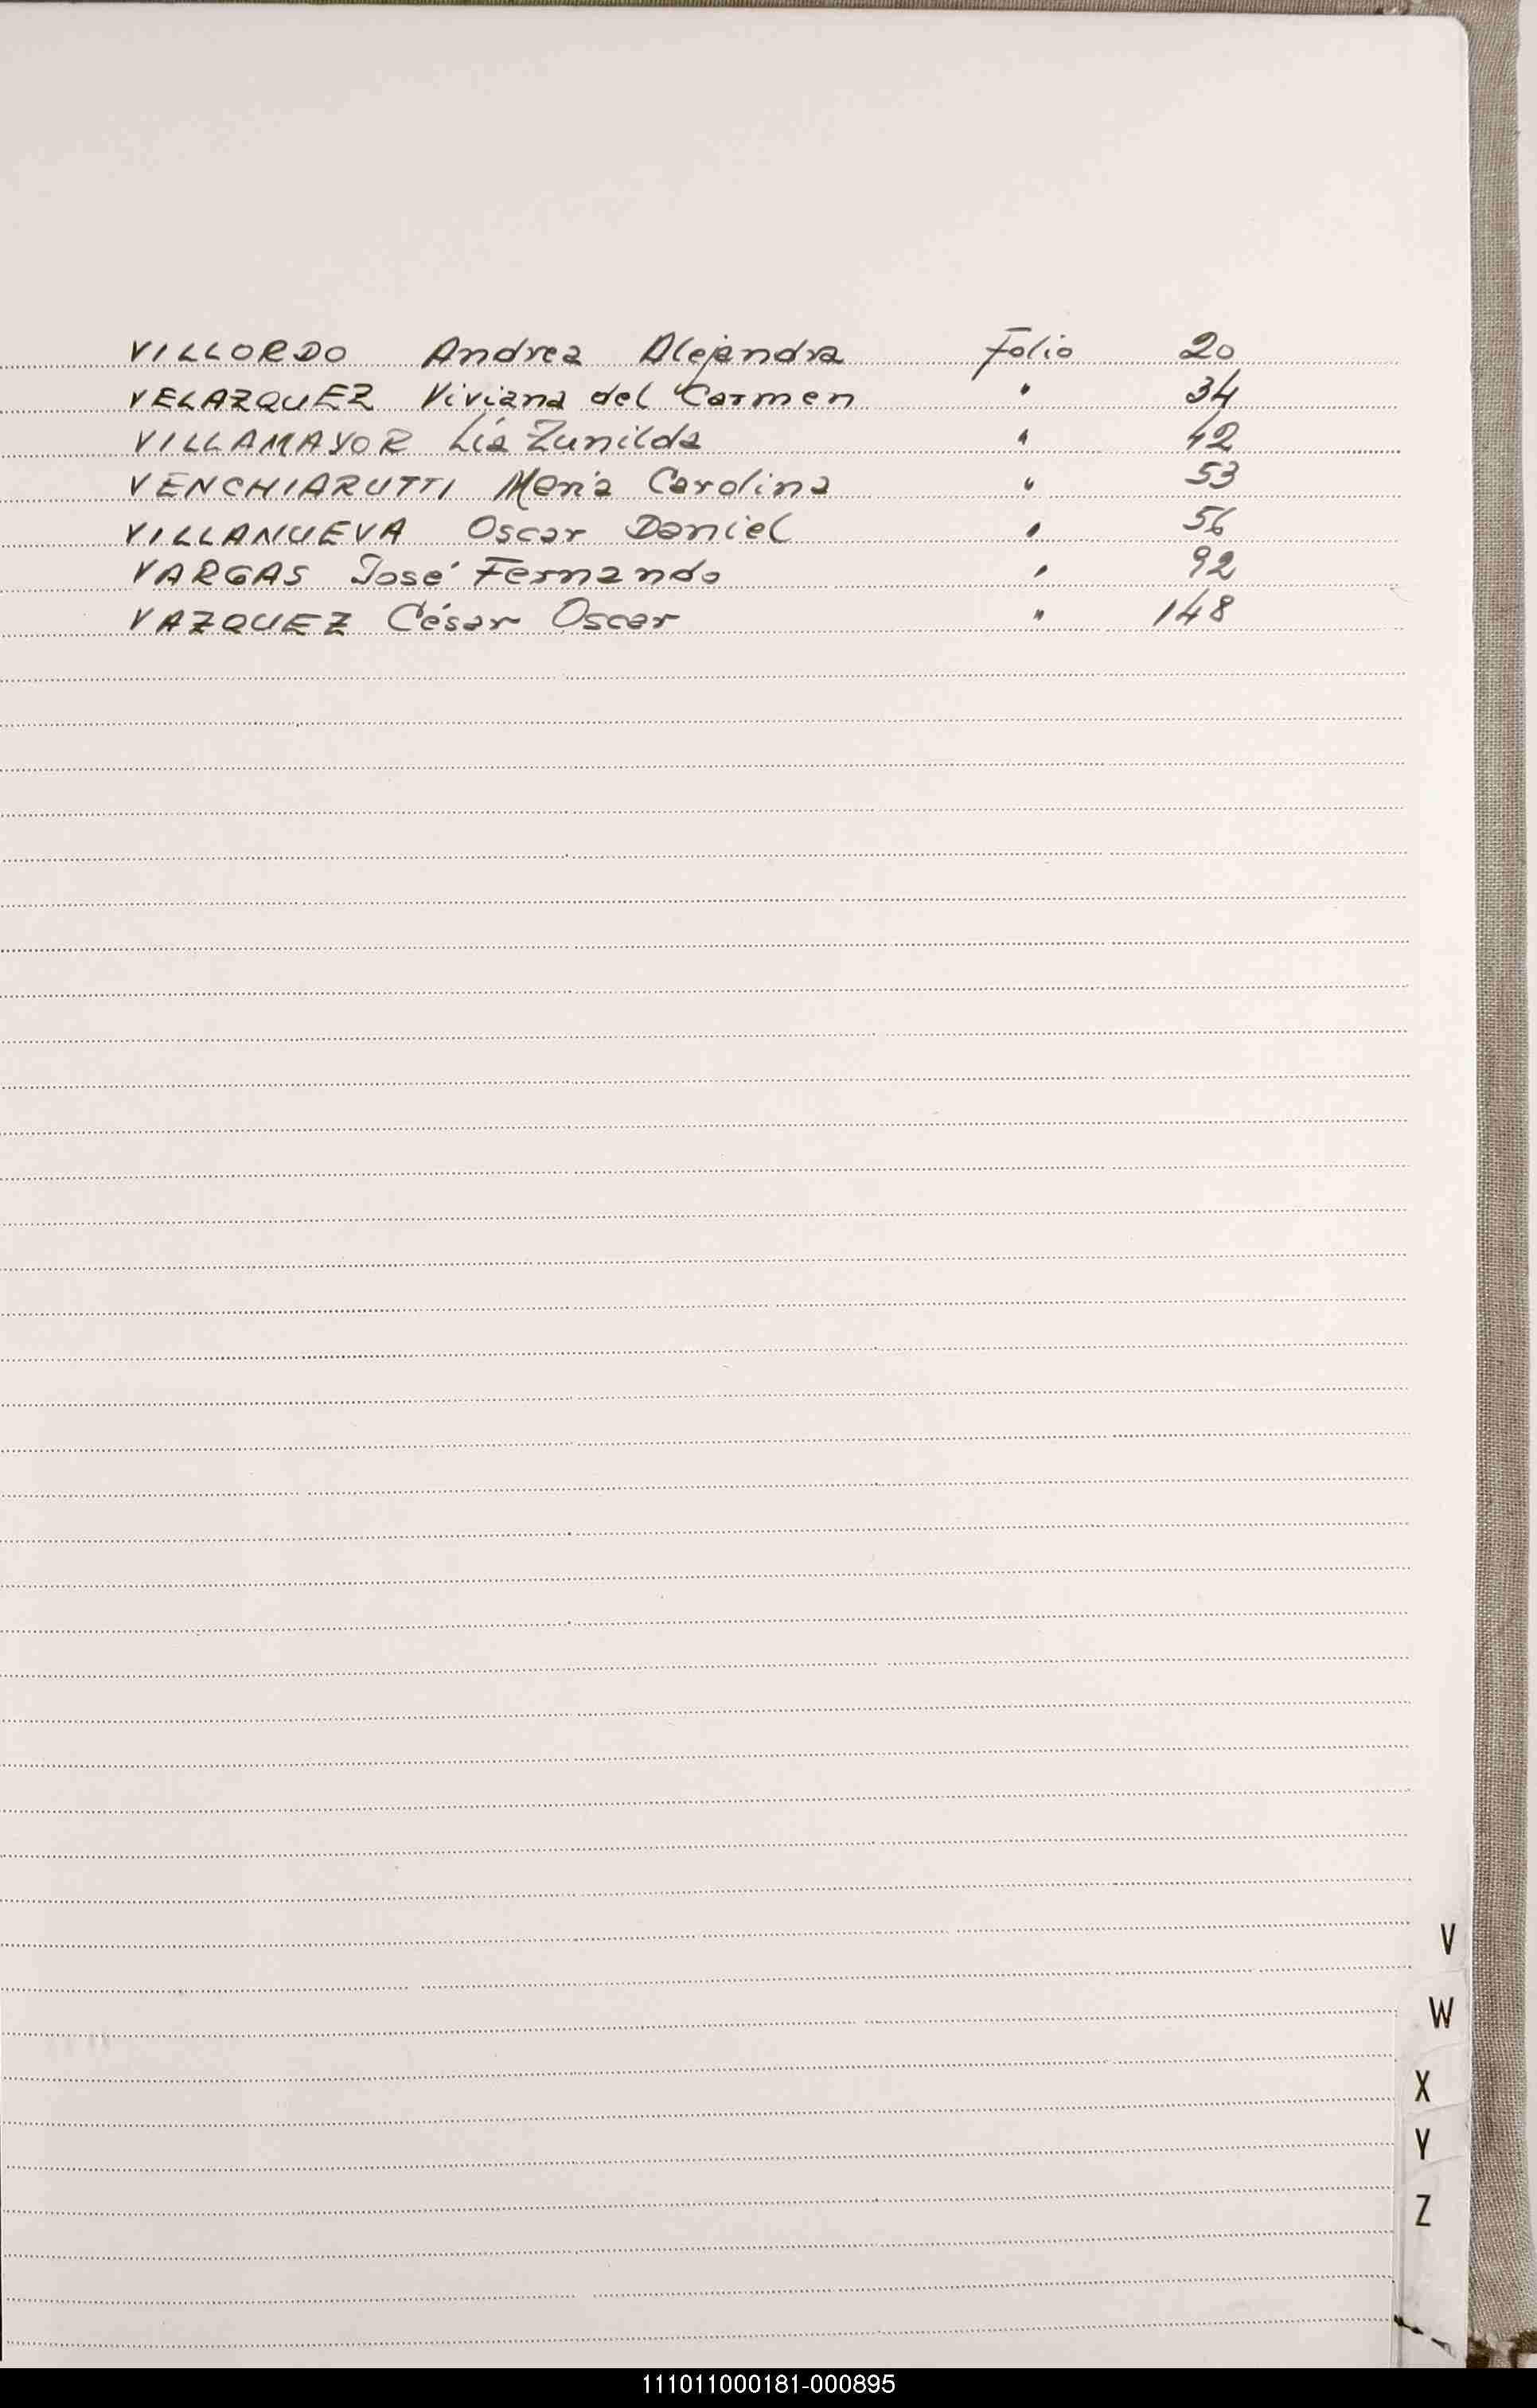 VILLORDO Andrea Alejandra Folio 20
VELAZQUEZ Viviana del Carmen " 34
VILLAMAYOR Lía Zunilda " 42
VENCHIARUTTI María Carolina " 53
VILLANUEVA Oscar Daniel " 56
VARGAS José Fernando " 92
VAZQUEZ César Oscar " 148
V
W
X
Y
Z
111011000181-000895